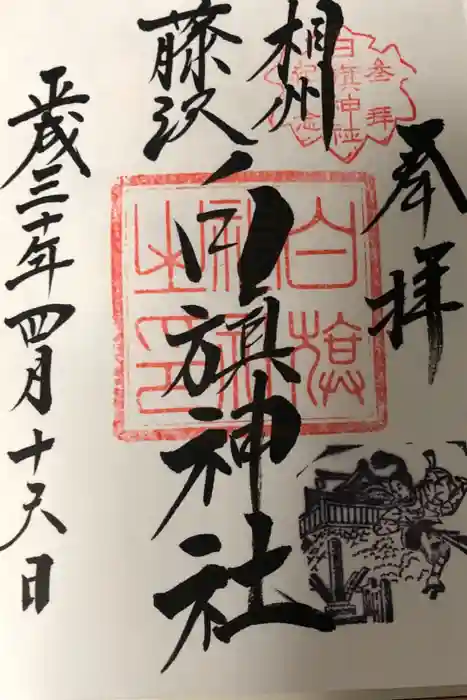 奉拝
相州
藤沢
白旗神社
平成三十年四月十六日
白旗神社
参拝
記念
白旗
神社
之印